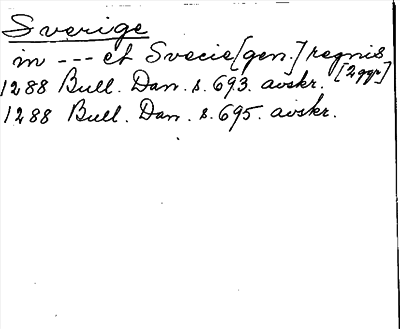 Sverige
in --- et Svecie [gen.] regnis
1288 Bull. Dan. s. 693. avskr. [2 ggr]
1288 Bull. Dan. s. 695. avskr.